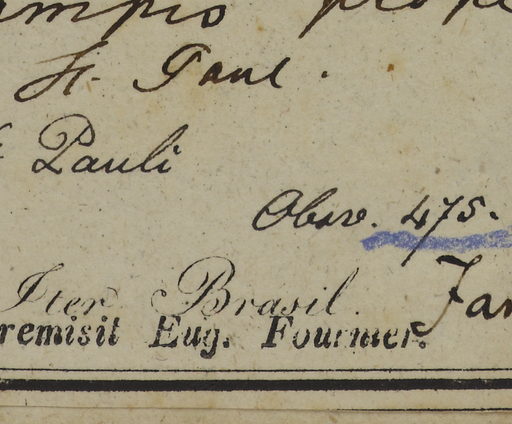 St. Paul.
Pauli
Obsv. 475.
Iter Brasil. Jan
remisit Eug. Fournier.